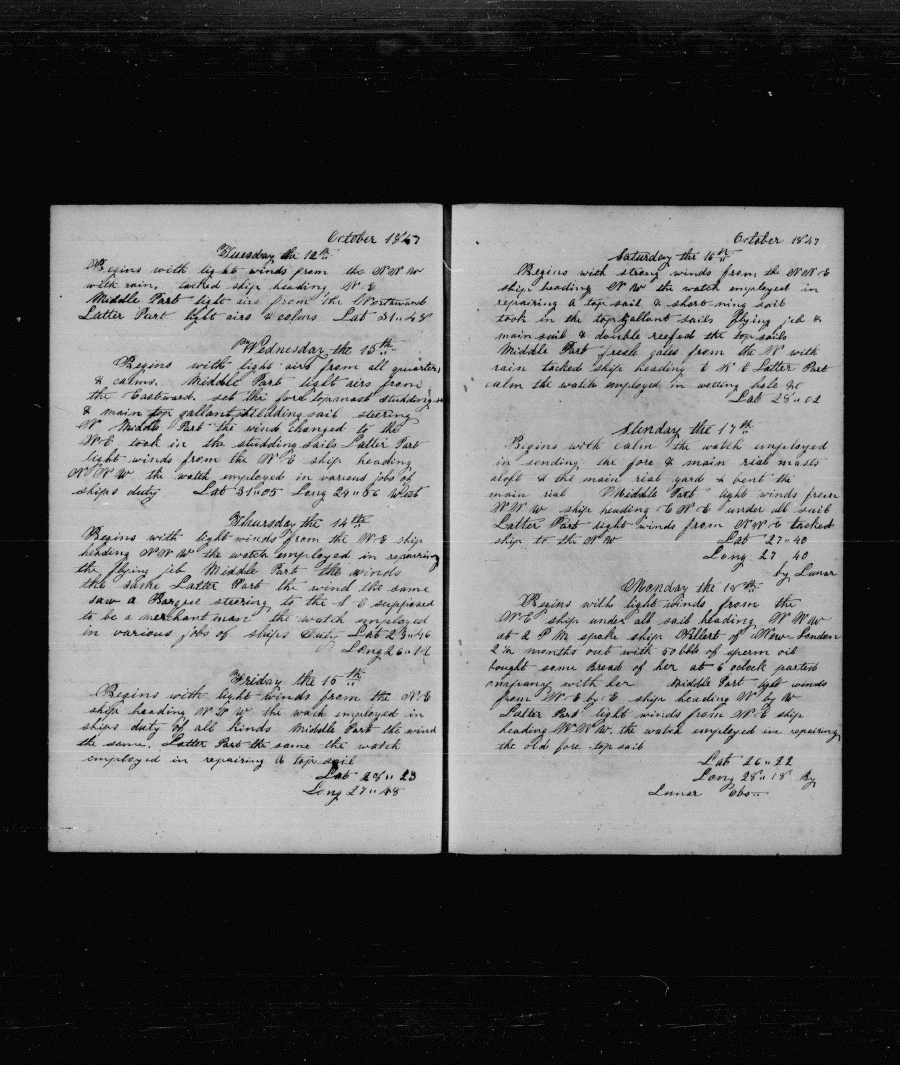 October 1847
Tuesday the 12th
Begins with light winds from the NNW
with rain. tacked ship heading N E
Middle Part light airs from the Northward
Latter Part light airs & calms Lat 31"48
Wednesday the 13th
Begins with light airs from all quarters
& calms. Middle Part light airs from
the Eastward. set the fore topmast studding
& main top gallant studding sail steering
N Middle Part the wind changed to the
NE took in the studding sails Latter Part
light winds from the N E ship heading
NNW the watch employed in various jobs of
ships duty Lat 31"05 Long 24"56 West
Thursday the 14th
Begins with light winds from the NE ship
heading NNW the watch employed in repairing
the flying jib Middle Part the winds
the same Latter Part the wind the same
saw a Barque steering to the S E supposed
to be a merchantman the watch employed
in various jobs of ships duty Lat 29"46
Long 26"11
Friday the 15th
Begins with light winds from the N E
ship heading NNW the wach employed in
ships duty of all kinds Middle Part the wind
the same. Latter Part the same the watch
employed in repairing a top sail
Lat 28"23
Long 27"48
October 1847
Saturday the 16th
Begins with strong winds from the NNE
ship heading NW the watch employed in
repairing a top sail & shortning sail
took in the top gallant sails flying jib &
main sail & double reefed the top sails
Middle Part fresh gales from the N with
rain tacked ship heading E N E Latter Part
calm the watch employed in wetting hole &c
Lat 28"02
Sunday the 17th
Begins with calm the watch employed
in sending the fore & main rial masts
aloft & the main rial yard & bent the
main rial Middle Part light winds from
NNW ship heading ENE under all sail
Latter Part light winds from NNE tacked
ship to the NW Lat 27"40
Long 27 40
by Lunar
Monday the 18th
Begins with light winds from the
NE ship under all sail heading NNW
at 2 PM spoke ship of New London
2 1/2 months out with 50 bbls of sperm oil
bought some Bread of her at 6 oclock parted
company with her Middle Part light winds
from NE by E ship heading N by W
Latter Part light winds from NE ship
heading NNW. the watch employed in repairing
the old fore top sail
Lat 26"22
Long 28"18 By
Lunar Obs